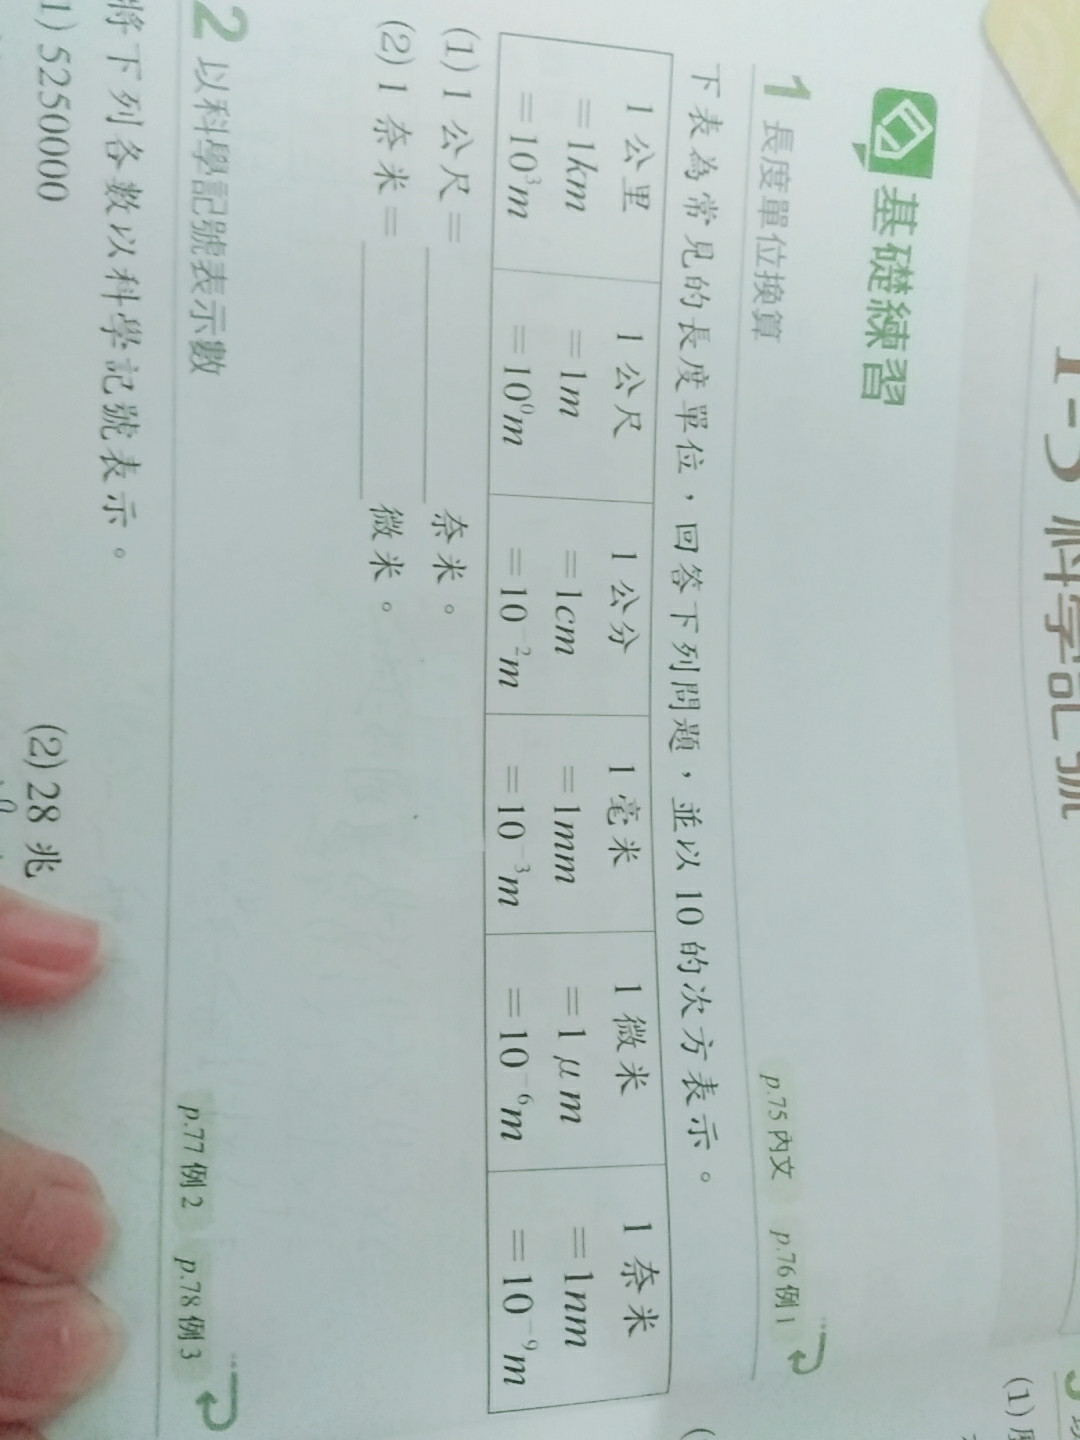 1-3 科學記號
基礎練習
1 長度單位換算 p.75 內文 p.76 例 1
下表為常見的長度單位,回答下列問題,並以 10 的次方表示。
1 公里 1 公尺 1 公分 1 毫米 1 微米 1 奈米
=1km =1m =1cm =1mm =1μm =1nm
=10³m =10⁰m =10⁻²m =10⁻³m =10⁻⁶m =10⁻⁹m
(1) 1 公尺= 奈米。
(2) 1 奈米= 微米。
2 以科學記號表示數 p.77 例 2 p.78 例 3
將下列各數以科學記號表示。
(1) 5250000 (2) 28 兆